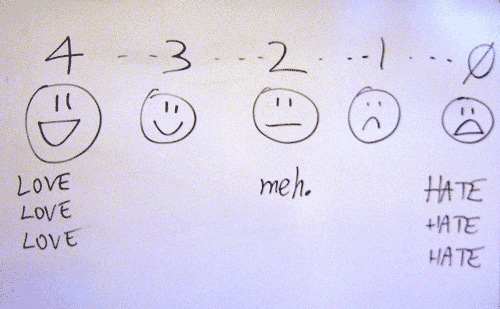 4 --- 3 ---- 2 ---- 1 --- Ø
LOVE
LOVE
LOVE
meh.
HATE
HATE
HATE